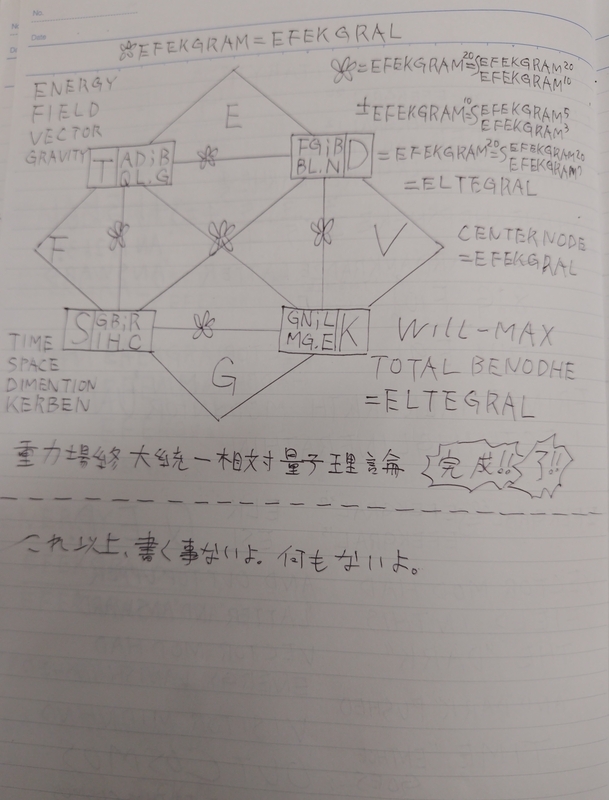 No.
Date
EFEKGRAM=EFEKGRAL
ENERGY
FIELD
VECTOR
GRAVITY
=EFEKGRAM²⁰=∫EFEKGRAM²⁰
EFEKGRAM¹⁰
±EFEKGRAM¹⁰=∫EFEKGRAM⁵
EFEKGRAM³
=EFEKGRAM²⁰=∫EFEKGRAM²⁰
EFEKGRAM⁷
=ELTEGRAL
E
T AD;B
QL.G
FG;B D
BL.N
F
V
CENTERNODE
=EFEKGRAL
S GB;R
IH.C
GN;L K
MG.E
G
TIME
SPACE
DIMENTION
KERBEN
WILL-MAX
TOTAL BENODHE
=ELTEGRAL
重力場終大統一相対量子理論 完成!!了!!
これ以上、書く事ないよ。何もないよ。